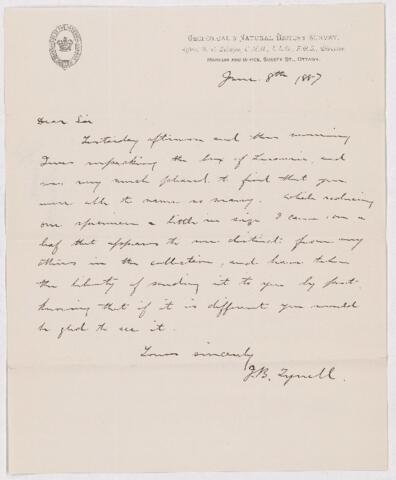 GEOLOGICAL & NATURAL HISTORY SURVEY,
Alfred R. C. Selwyn, C.M.G., L.L.D., F.R.S., Director.
MUSEUM AND OFFICE, SUSSEX ST., OTTAWA.
June 8th 1887
Dear Sir
Yesterday afternoon and this morning
I was unpacking the box of and
was very much pleased to find that you
were able to name so many. While reducing
one specimen a little in size I came on a
leaf that appears to me distinct from any
others in the collection, and have taken
the liberty of sending it to you by post
knowing that if it is different you would
be glad to see it.
Yours sincerely
J.B. Tyrrell.